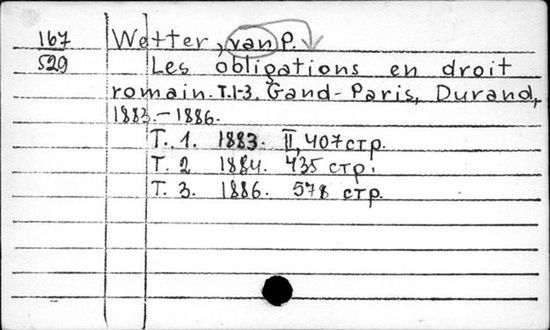 167 Wetter, van P.
529 Les obligations en droit
romain. T.1-3. Gand-Paris, Durand,
1883.-1886.
T. 1. 1883. II, 407 стр.
T. 2 1884. 435 стр.
T. 3. 1886. 578 стр.